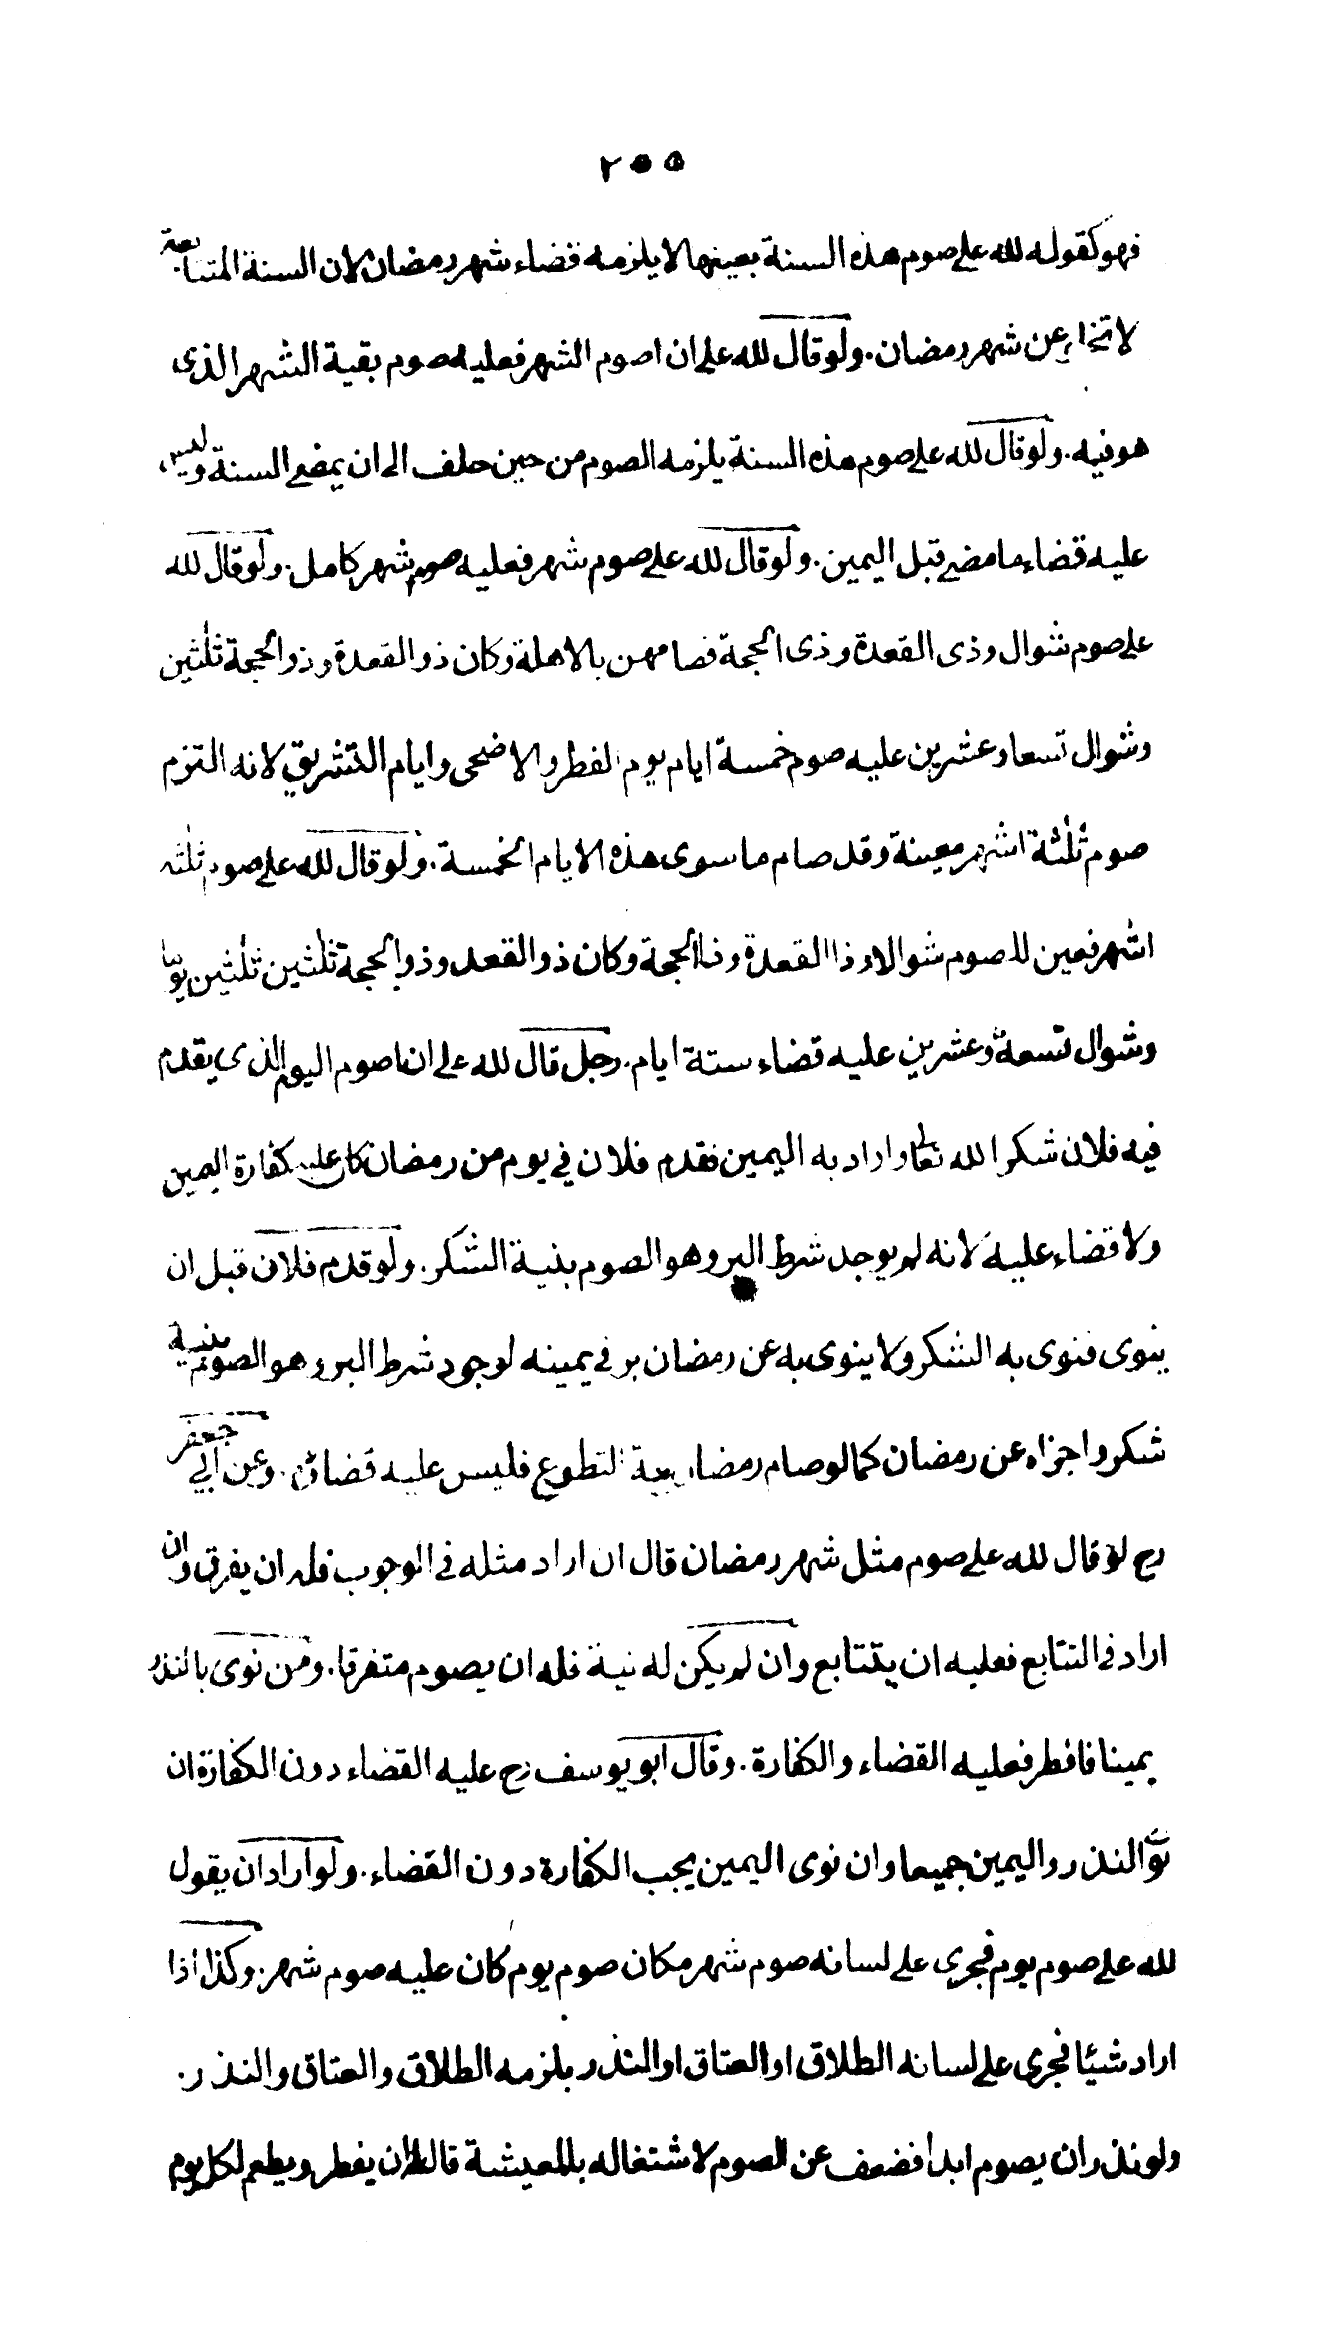 ٢٥٥
فهو كقوله لله على صوم هذه السنة بعينها لا يلزمه قضاء شهر رمضان لان السنة المتتابعة
لا تخلو عن شهر رمضان. ولو قال لله على ان اصوم الشهر فعليه صوم بقية الشهر الذى
هو فيه. ولو قال لله على صوم هذه السنة يلزمه الصوم من حين حلف الى ان يمضى السنة وليس
عليه قضاء ما مضى قبل اليمين. ولو قال لله على صوم شهر فعليه صوم شهر كامل. ولو قال لله
على صوم شوال وذى القعدة وذى الحجة فصامهن بالاهلة وكان ذو القعدة وذو الحجة ثلثين
وشوال تسعا وعشرين عليه صوم خمسة ايام يوم الفطر والاضحى وايام التشريق لانه التزم
صوم ثلثة اشهر معينة وقد صام ما سوى هذه الايام الخمسة. ولو قال لله على صوم ثلثة
اشهر فعين للصوم شوالا وذا القعدة وذا الحجة وكان ذو القعد وذو الحجة ثلثين ثلثين يوما
وشوال تسعة وعشرين عليه قضاء ستة ايام. رجل قال لله على ان اصوم اليوم الذى يقدم
فيه فلان شكرا لله تعالى واراد به اليمين فقدم فلان في يوم من رمضان كان عليه كفارة اليمين
ولا قضاء عليه لانه لم يوجد شرط البر وهو الصوم بنية الشكر. ولو قدم فلان قبل ان
ينوى فنوى به الشكر ولا ينوى به عن رمضان بر في يمينه لوجود شرط البر وهو الصوم بنية
شكر واجزاه عن رمضان كما لو صام رمضان بنية التطوع فليس عليه قضاؤه. وعن ابي جعفر
رح لو قال لله على صوم مثل شهر رمضان قال ان اراد مثله في الوجوب فله ان يفرق وان
اراد في التتابع فعليه ان يتتابع وان لم يكن له نية فله ان يصوم متفرقا. ومن نوى بالنذر
يمينا فافطر فعليه القضاء والكفارة. وقال ابو يوسف رح عليه القضاء دون الكفارة ان
نوى النذر واليمين جميعا وان نوى اليمين يجب الكفارة دون القضاء. ولو اراد ان يقول
لله على صوم يوم فجرى على لسانه صوم شهر مكان صوم يوم كان عليه صوم شهر. وكذا اذا
اراد شيئا فجرى على لسانه الطلاق او العتاق او النذر يلزمه الطلاق والعتاق والنذر.
ولو نذر ان يصوم ابدا فضعف عن الصوم لاشتغاله بالمعيشة قالوا له ان يفطر ويطعم لكل يوم